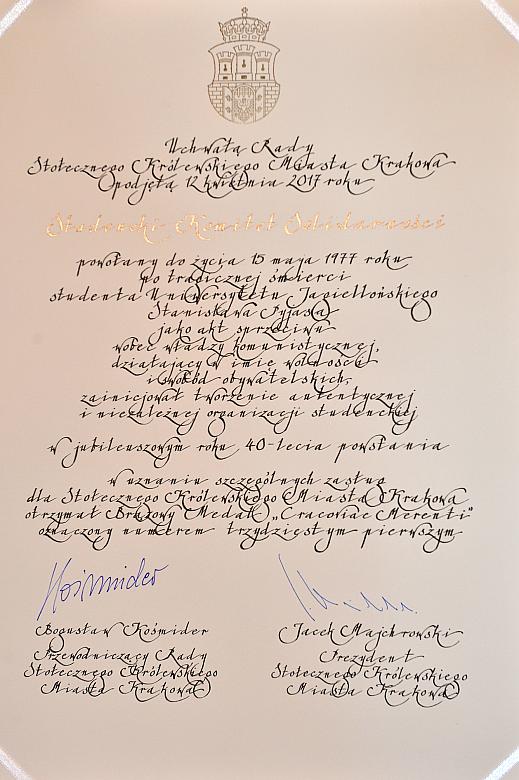 Uchwałą Rady
Stołecznego Królewskiego Miasta Krakowa
podjętą 12 kwietnia 2017 roku
Studencki Komitet Solidarności
powołany do życia 15 maja 1977 roku
po tragicznej śmierci
studenta Uniwersytetu Jagiellońskiego
Stanisława Pyjasa
jako akt sprzeciwu
wobec władzy komunistycznej,
działający w imię wolności
i swobód obywatelskich,
zainicjował tworzenie autentycznej
i niezależnej organizacji studenckiej
w jubileuszowym roku 40-lecia powstania
w uznaniu szczególnych zasług
dla Stołecznego Królewskiego Miasta Krakowa
otrzymał Brązowy Medal „Cracoviae Merenti”
oznaczony numerem trzydziestym pierwszym
Kośmider
Bogusław Kośmider
Przewodniczący Rady
Stołecznego Królewskiego
Miasta Krakowa
Jacek Majchrowski
Prezydent
Stołecznego Królewskiego
Miasta Krakowa